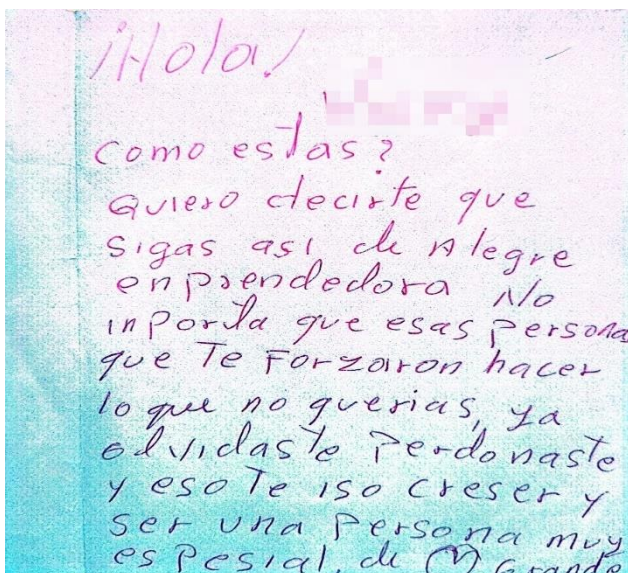 ¡Hola!
como estas?
Quiero decirte que
sigas asi de Alegre
enprendedora No
inporta que esas persona
que Te Forzaron hacer
lo que no querias, ya
olvidaste Perdonaste
y eso Te iso creser y
ser una Persona muy
espesial. de Grande